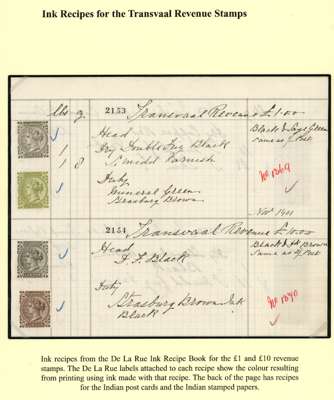 Ink Recipes for the Transvaal Revenue Stamps
lbs oz
2153 Transvaal Revenue £1.00
Head
Black & Sage Green
same as
Black
1 8 Varnish
Duty
Mineral Green
Strasburg Brown
No 1269
Nov 1901
2154 Transvaal Revenue £10.00
Head
Black & Brown
Same as
Black
Duty
Strasburg Brown Ink
Black
No 1270
Ink recipes from the De La Rue Ink Recipe Book for the £1 and £10 revenue
stamps. The De La Rue labels attached to each recipe show the colour resulting
from printing using ink made with that recipe. The back of the page has recipes
for the Indian post cards and the Indian stamped papers.